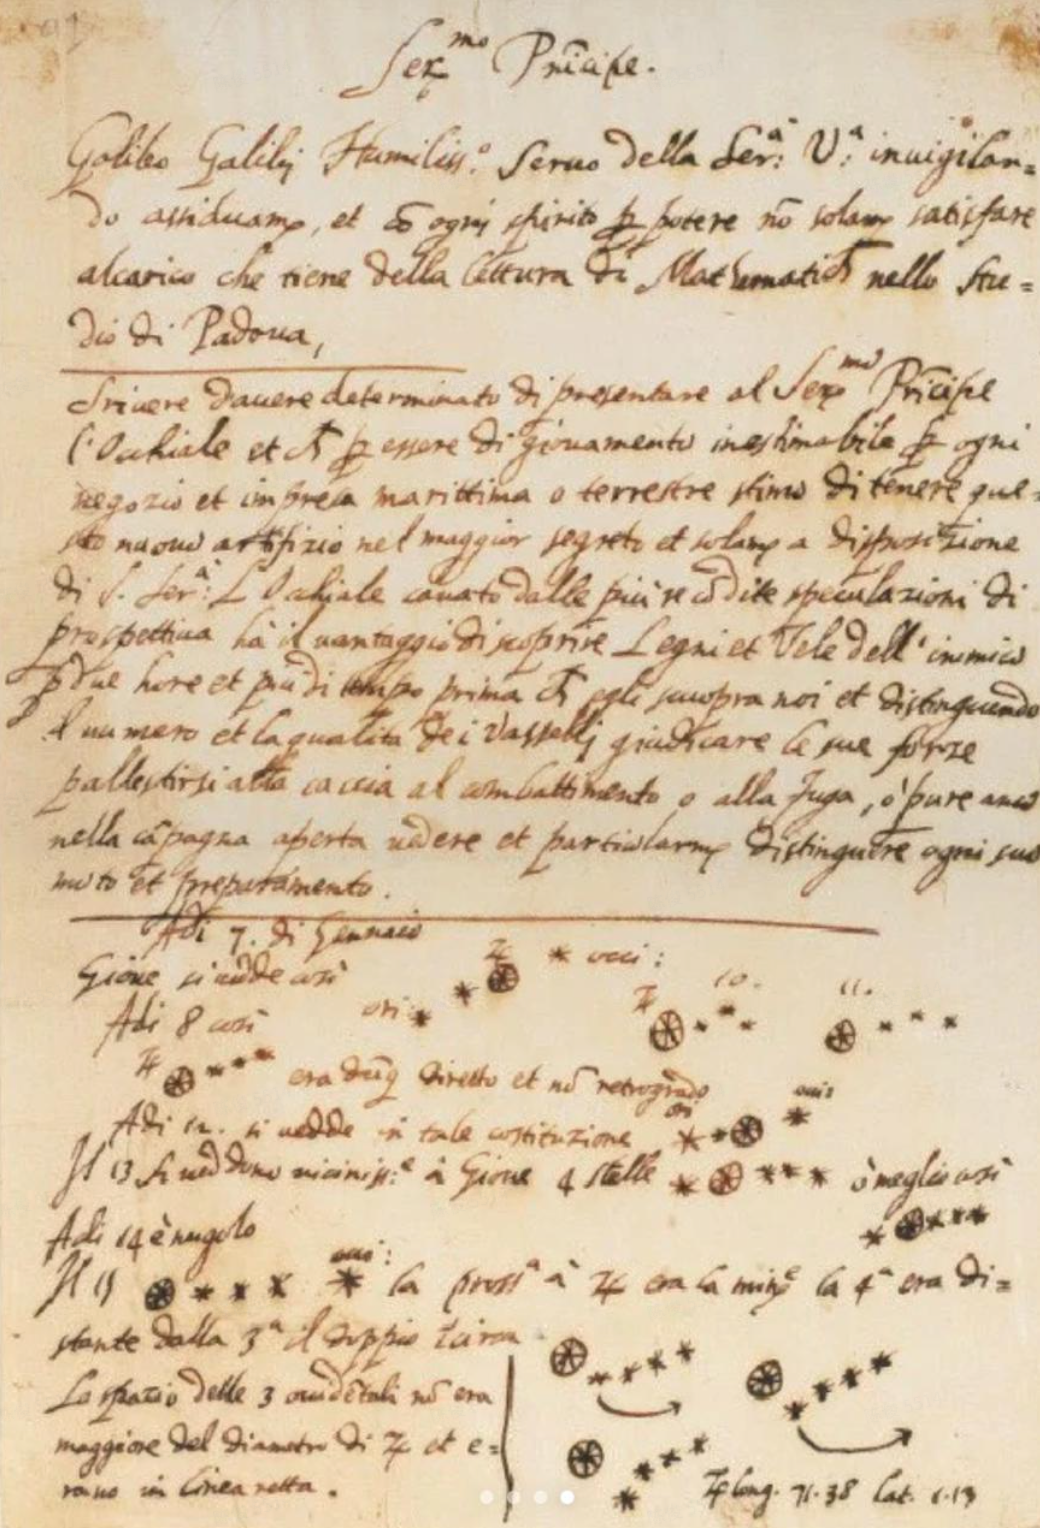 Ser.mo Prĩcipe.
Galileo Galilej Humiliss.o Seruo della Ser:a V:a inuigilan=
do assiduam.e, et cõ ogni spirito p potere nõ solam.e satisfare
alcarico che tiene della lettura di Mathematich nello stu=
dio di Padoua,
Scriuere dauere determinato di presentare al Ser.mo Prĩcipe
l'Occhiale et ch p essere di giouamento inestimabile p ogni
negozio et impresa marittima o terrestre stimo di tenere que=
sto nuouo artifizio nel maggior segreto et solam.e a disposizione
di S. Ser:a L'Occhiale cauato dalle più recõdite speculazioni di
prospettiua hà il uantaggio di scoprire Legni et Vele dell'inimico
p due hore et più di tempo prima ch egli scuopra noi et distinguendo
il numero et la qualità dei Vasselli giudicare le sue forze
pallestirsi alla caccia al combattimento o alla fuga, ò pure anco
nella cãpagna aperta uedere et particolarm.e distinguere ogni suo
moto et preparamento.
Adi 7. di Gennaio
Gioue si uedde così ♃ * occi:
Adi 8 così ori: * * ♃ 10. 11.
♃ * * * era dũq diretto et nõ retrogrado
Adi 12. si uedde in tale costituzione ori * * * occi
Il 13 si ueddono uiciniss:e à Gioue 4 stelle * * * * ò meglio così
Adi 14 è nugolo * * * *
Il 15 * * * * occi: la pross.a à ♃ era la min.e la 4.a era di=
stante dalla 3.a il doppio ĩcirca
Lo spazio delle 3 occidẽtali nõ era
maggiore del diametro di ♃ et e=
rano in linea retta.
♃ long. 71.38 lat. 1.13